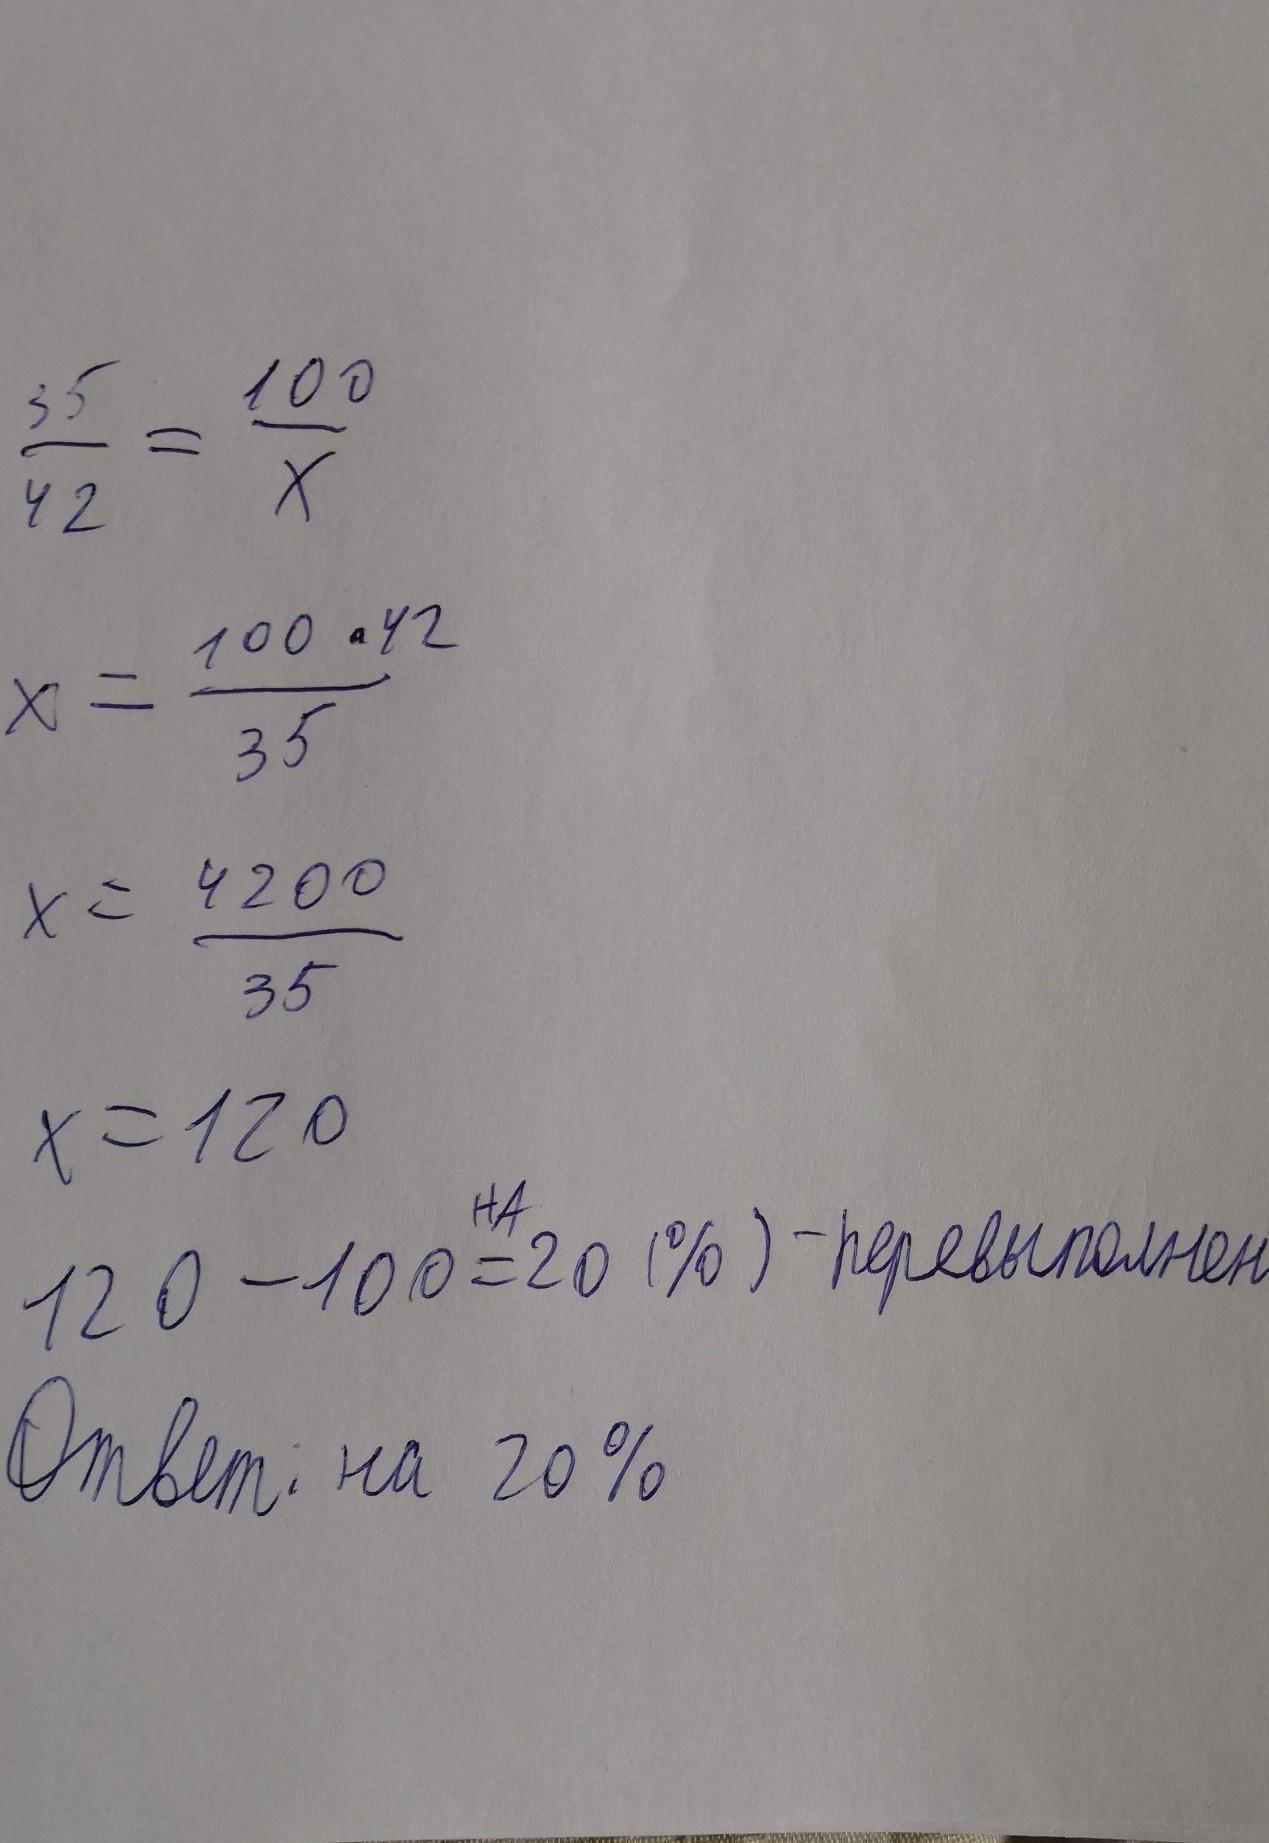 35/42 = 100/x
x = 100 · 42/35
x = 4200/35
x = 120
НА
120 - 100 = 20 (%) - перевыполнен
Ответ: на 20%